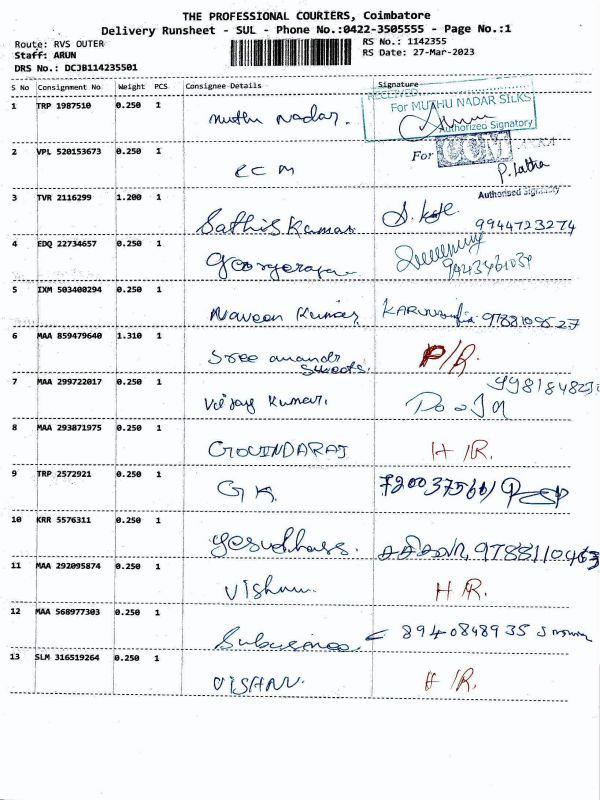 THE PROFESSIONAL COURIERS, Coimbatore
Delivery Runsheet - SUL - Phone No.:0422-3505555 - Page No.:1
Route: RVS OUTER
Staff: ARUN
DRS No.: DCJB114235501
RS No.: 1142355
RS Date: 27-Mar-2023
S No Consignment No Weight PCS Consignee Details Signature
1 TRP 1987510 0.250 1 Muthu Nadar.
RECEIVED
For MUTHU NADAR SILKS
Authorized Signatory
2 VPL 520153673 0.250 1 ECM
For
P. Latha
Authorised Signatory
3 TVR 2116299 1.200 1 Sathis Kumar 9944723274
4 EDQ 22734657 0.250 1
5 IXM 503400294 0.250 1 Naveen Kumar
6 MAA 859479640 1.310 1 Sree anandr Sweets. P/R.
7 MAA 299722017 0.250 1 Vijay Kumar.
8 MAA 293871975 0.250 1 GOVINDARAJ H/R.
9 TRP 2572921 0.250 1 G K.
10 KRR 5576311 0.250 1
11 MAA 292095874 0.250 1 Vishnu. H/R.
12 MAA 568977303 0.250 1 8940848935
13 SLM 316519264 0.250 1 VISHNU. H/R.